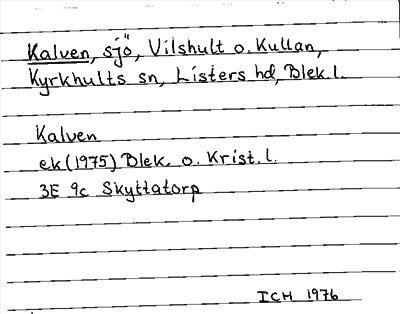 Kalven, sjö, Vilshult o. Kullan,
Kyrkhults sn, Listers hd, Blek. l.
Kalven
ek (1975) Blek. o. Krist. l.
3E 9c Skyttatorp
ICH 1976